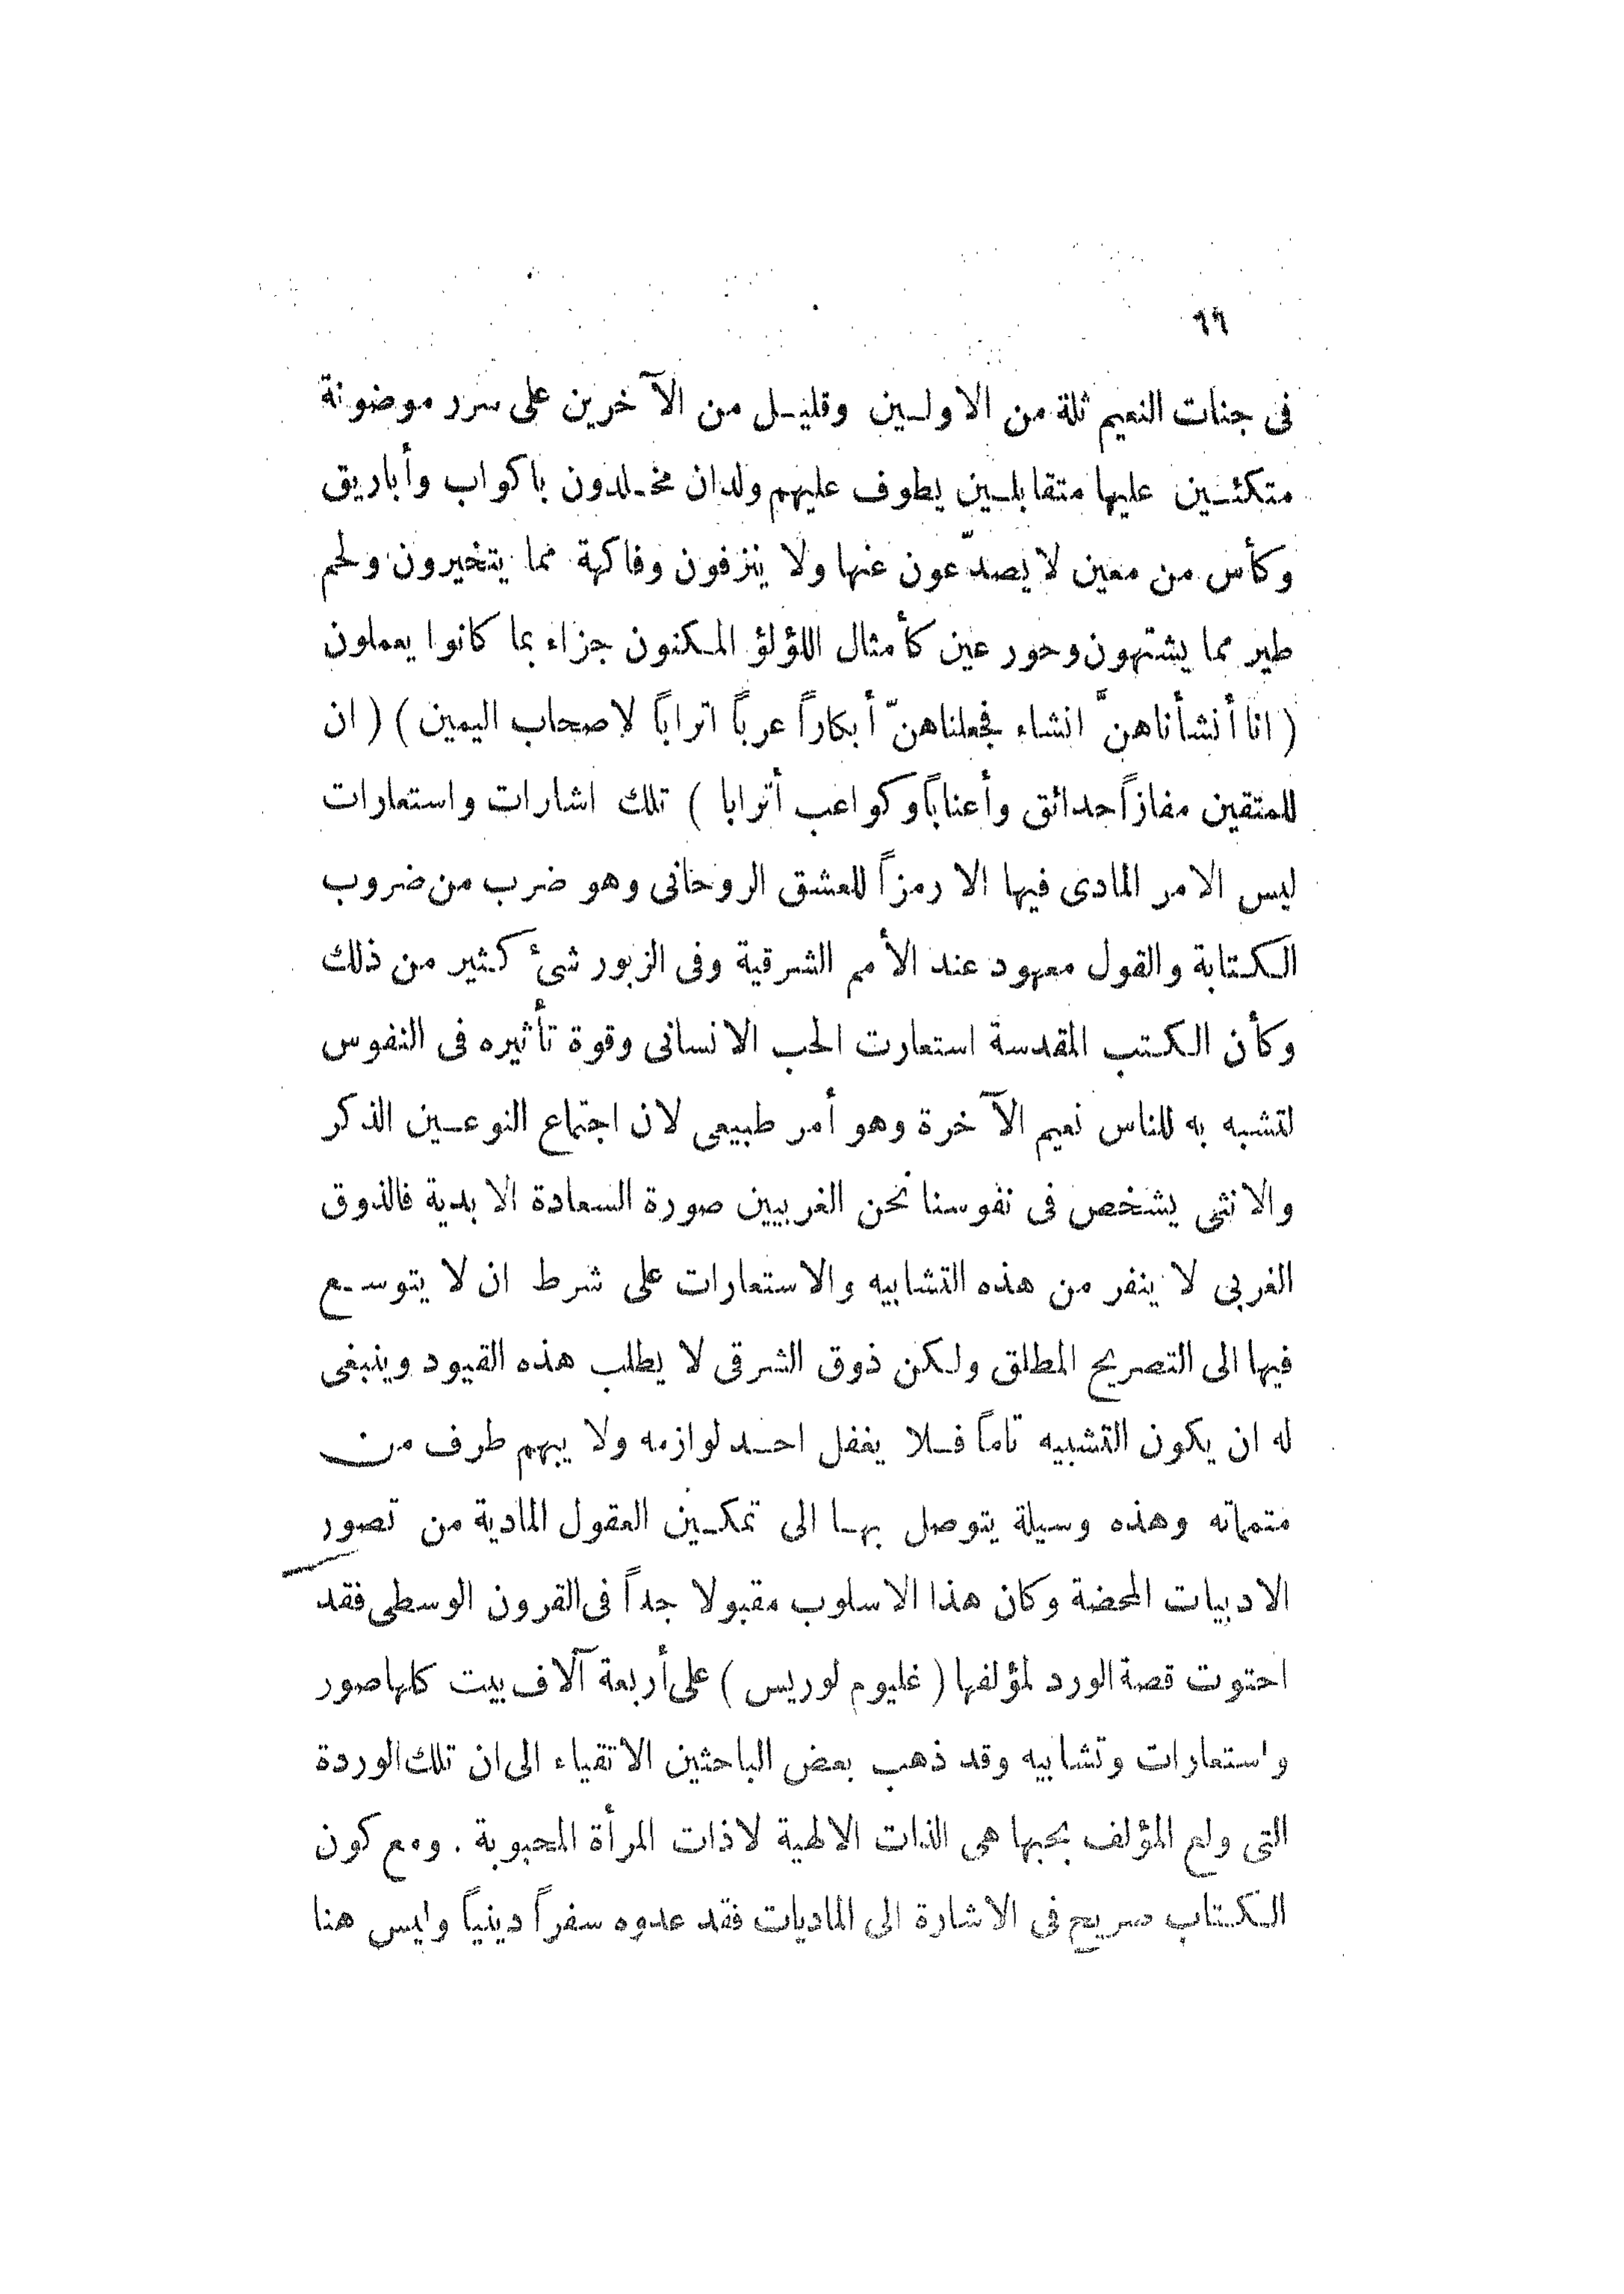 ٦٦
فى جنات النعيم ثلة من الاولـين وقليـل من الآخرين على سرر موضونة
متكئـين عليها متقابلـين يطوف عليهم ولدان مخـلدون باكواب وأباريق
وكأس من معين لا يصدّعون عنها ولا ينزفون وفاكهة مما يتخيرون ولحم
طير مما يشتهون وحور عين كأمثال اللؤلؤ المكنون جزاء بما كانوا يعملون
( انا أنشأناهنّ انشاء فجعلناهنّ أبكاراً عرباً اتراباً لاصحاب اليمين ) ( ان
للمتقين مفازاً حدائق وأعناباً وكواعب أترابا ) تلك اشارات واستعارات
ليس الامر المادى فيها الا رمزاً للعشق الروحانى وهو ضرب من ضروب
الكتابة والقول معهود عند الأمم الشرقية وفى الزبور شئ كثير من ذلك
وكأن الكتب المقدسة استعارت الحب الانسانى وقوة تأثيره فى النفوس
لتشبه به للناس نعيم الآخرة وهو أمر طبيعى لان اجتماع النوعـين الذكر
والانثى يشخص فى نفوسنا نحن الغربيين صورة السعادة الابدية فالذوق
الغربى لا ينفر من هذه التشابيه والاستعارات على شرط ان لا يتوسـع
فيها الى التصريح المطلق ولكن ذوق الشرقى لا يطلب هذه القيود وينبغى
له ان يكون التشبيه تاماً فـلا يغفل احـد لوازمه ولا يبهم طرف من
متمماته وهذه وسيلة يتوصل بهـا الى تمكـين العقول المادية من تصور
الادبيات المحضة وكان هذا الاسلوب مقبولا جداً فى القرون الوسطى فقد
احتوت قصة الورد لمؤلفها ( غليوم لوريس ) على أربعة آلاف بيت كلها صور
واستعارات وتشابيه وقد ذهب بعض الباحثين الاتقياء الى ان تلك الوردة
التى ولع المؤلف بحبها هى الذات الالهية لا ذات المرأة المحبوبة . ومع كون
الكتاب صريح فى الاشارة الى الماديات فقد عدوه سفراً دينياً وليس هنا